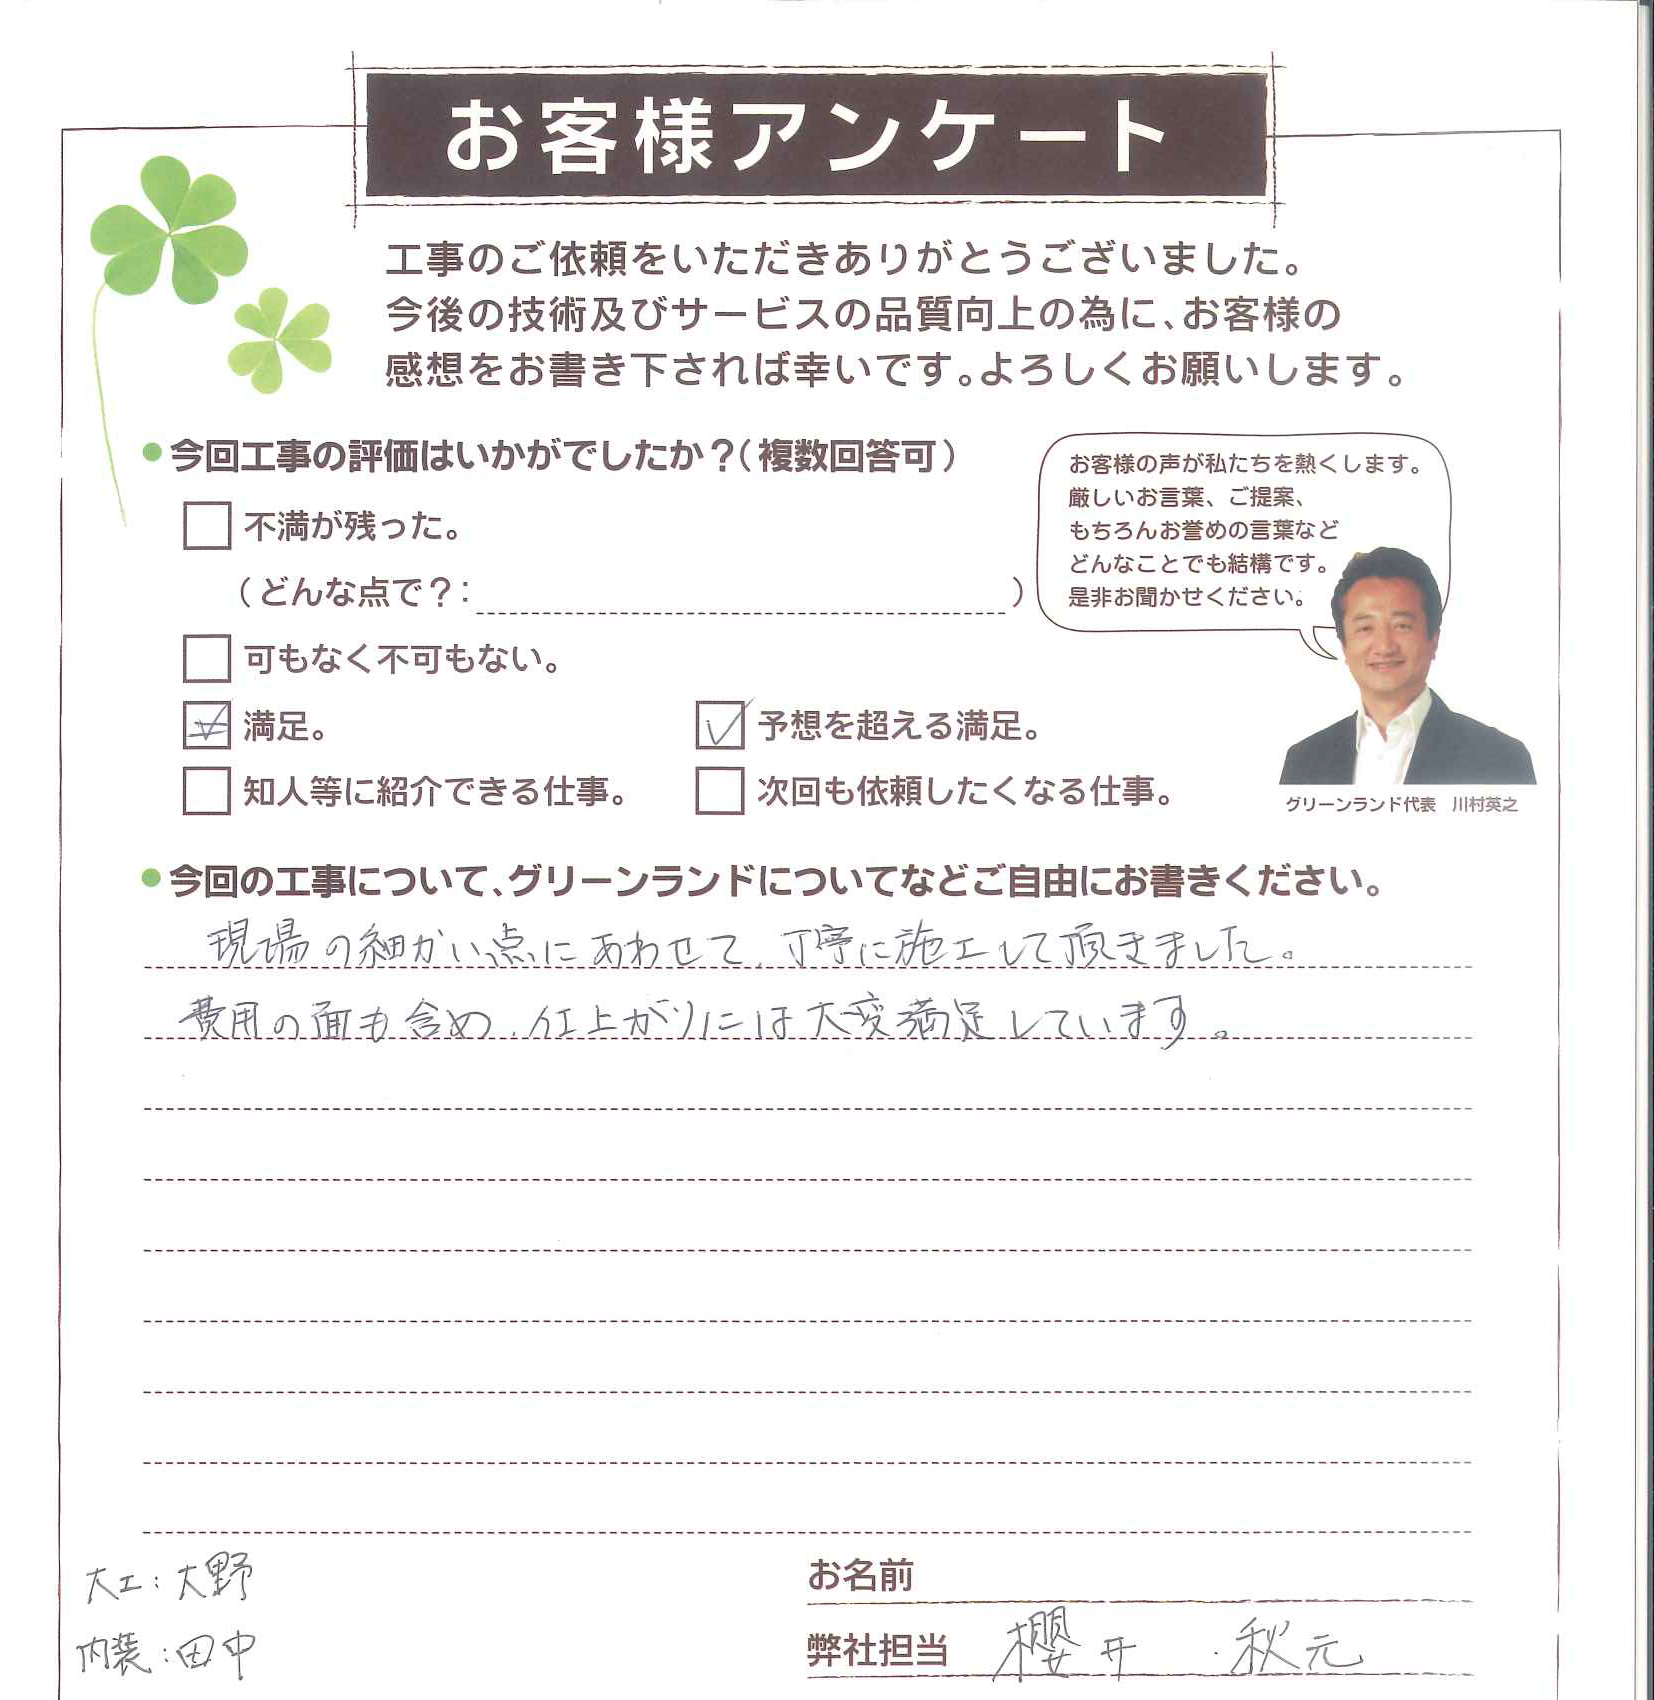 お客様アンケート
工事のご依頼をいただきありがとうございました。
今後の技術及びサービスの品質向上の為に、お客様の
感想をお書き下されば幸いです。よろしくお願いします。
今回工事の評価はいかがでしたか？（複数回答可）
不満が残った。
（どんな点で？：　）
可もなく不可もない。
満足。
予想を超える満足。
知人等に紹介できる仕事。
次回も依頼したくなる仕事。
お客様の声が私たちを熱くします。
厳しいお言葉、ご提案、
もちろんお誉めの言葉など
どんなことでも結構です。
是非お聞かせください。
グリーンランド代表　川村英之
今回の工事について、グリーンランドについてなどご自由にお書きください。
現場の細かい点にあわせて、丁寧に施工して頂きました。
費用の面も含め、仕上がりには大変満足しています。
大工：大野
内装：田中
お名前
弊社担当　櫻井　・秋元